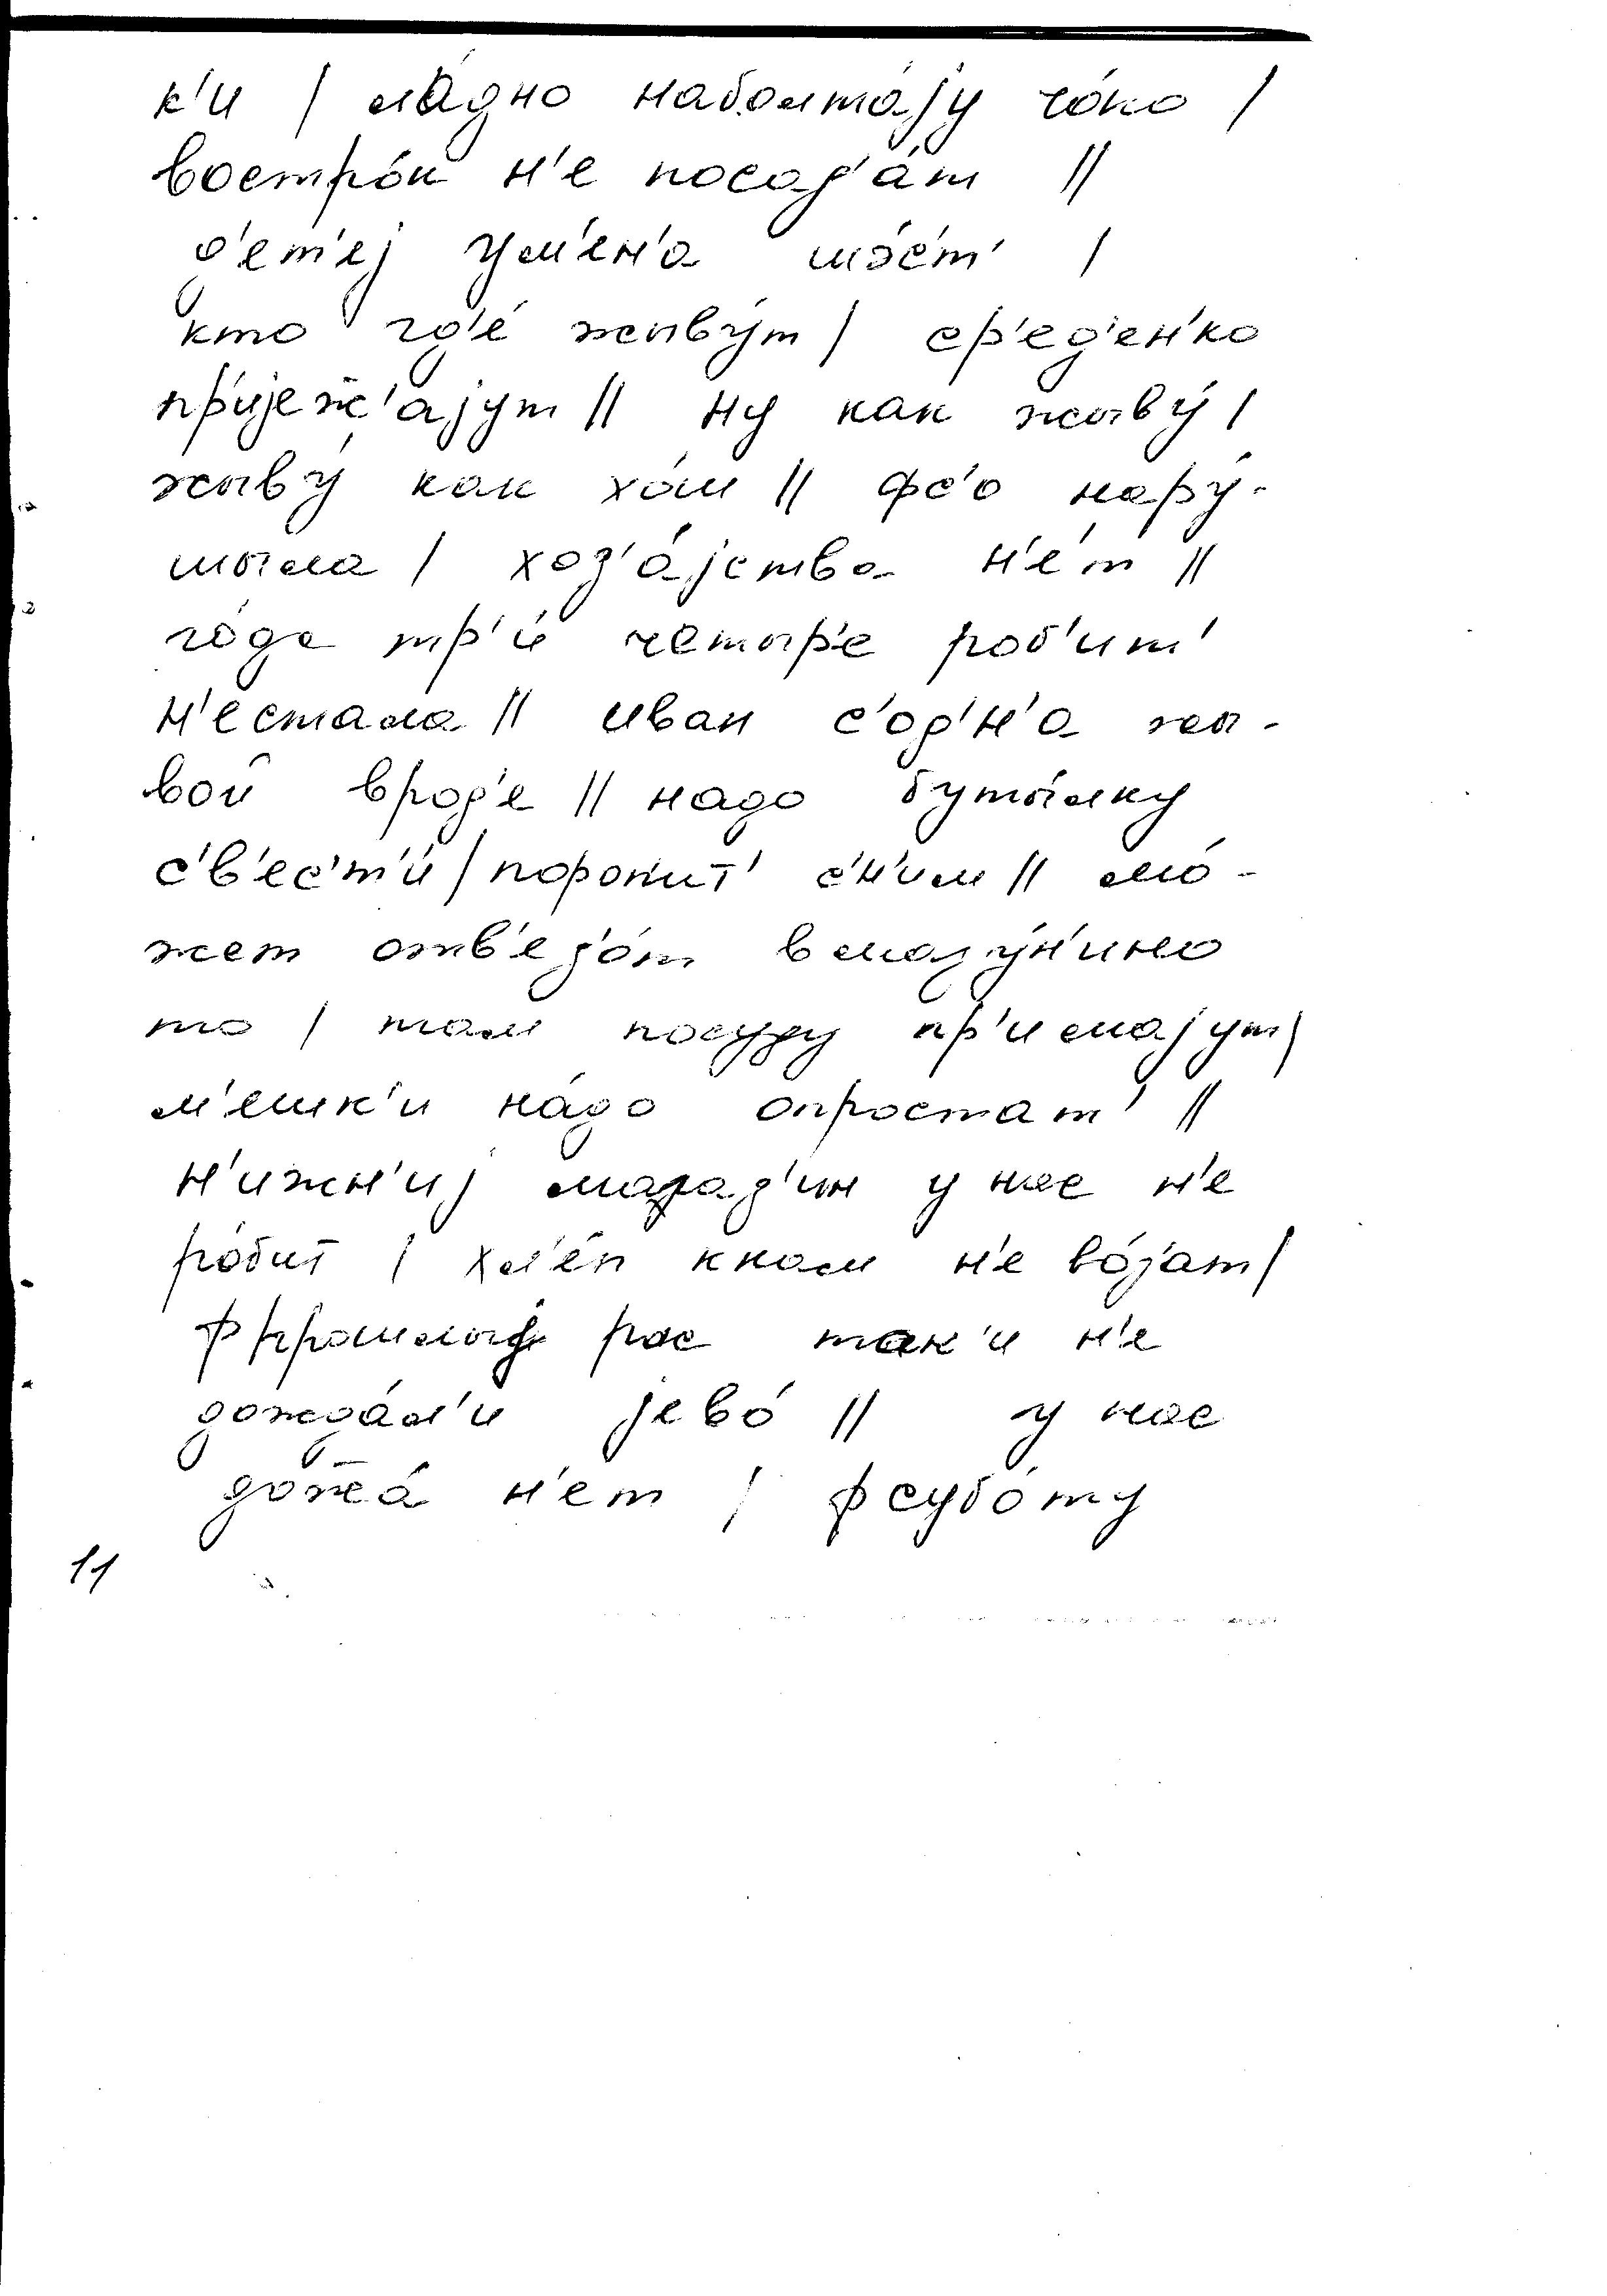 к'и / ла́дно наболта́jу чо́ко /
востро́к н'е посад'а́т //
д'ет'еj ум'ен'а шэ́с'т' /
кто гд'е́ жыву́т / ср'ед'ен'ко
пр'иjеж̄'аjут // ну как жыву́ /
жыву́ как ха́м // фс'о нару́-
шыла / хоз'а́jства н'е́т //
го́да тр'и́ четыр'е роб'ит'
н'естала // иван с'од'н'а жы-
вой врод'е // надо буты́лку
с'в'ес'т'и́ / поропит' с'н'им // мо́-
жет отв'ез'о́т вмазу́н'ино
то / там посуду пр'имаjут /
м'ешк'и на́до опростат' //
н'ижн'иj магаз'ин у нас н'е
ро́бит / хл'е́п кнам н'е во́з'ат /
фпрошлыj рас так'и н'е
дожда́л'и jево́ // у нас
дож̄а́ н'ет / фсубо́ту
11